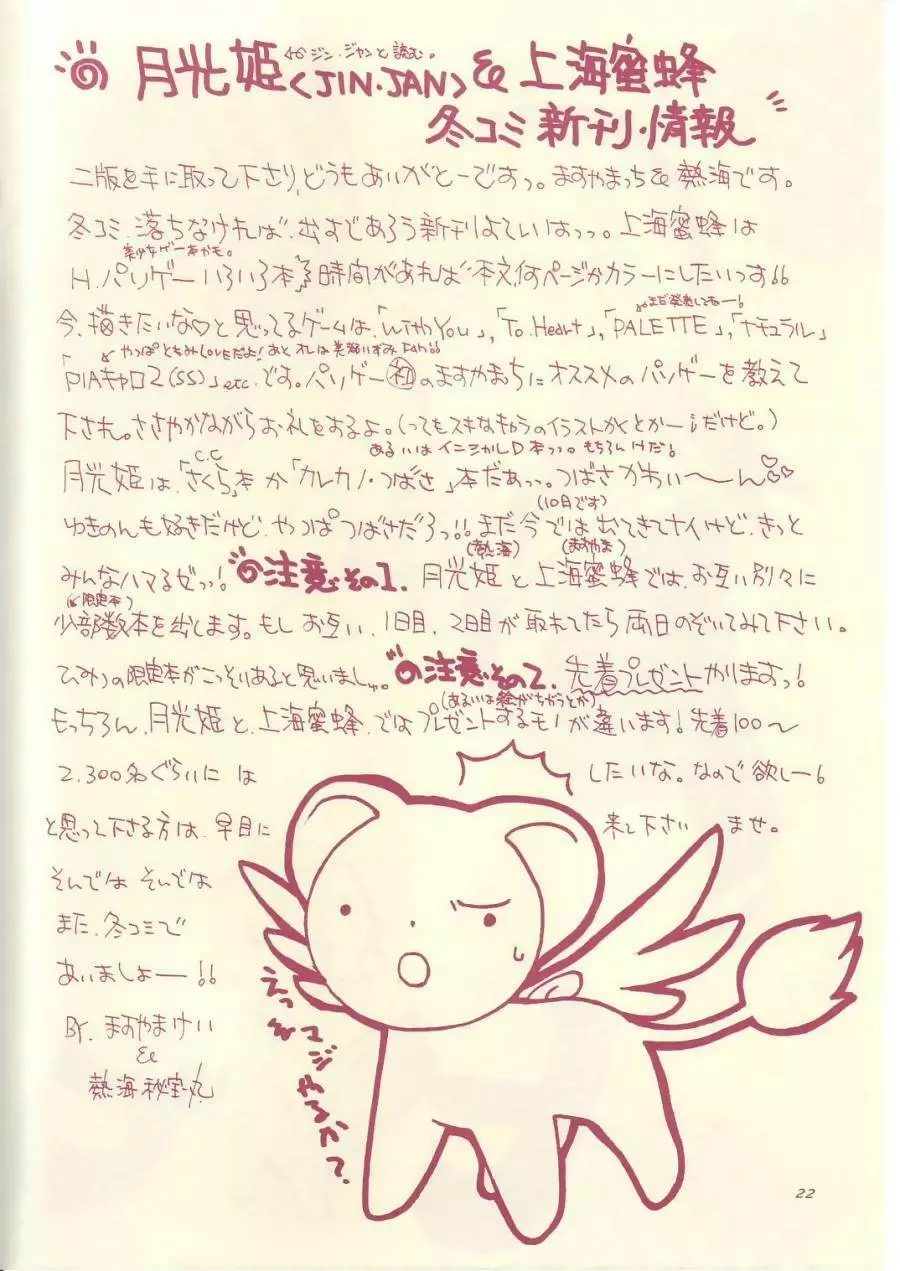 月光姫<JIN・JAN>& 上海蜜蜂
←ジン・ジャンと読む。
冬コミ 新刊・情報
二版を手に取って下さり、どうもありがとーですっ。ますやまっち&熱海です。
冬コミ、落ちなければ、出すであろう新刊よてぃはっっ。上海蜜蜂は
美少女ゲー本かも。
H.パソゲーいろいろ本 時間があれば本文何ページかカラーにしたいっす!!
まだ発売してねー!
今、描きたいな♡と思ってるゲームは、「With You」,「To Heart」,「PALETTE」,「ナチュラル」
「PIAキャロ2(SS)」etc.です。パソゲー初のますやまっちにオススメのパソゲーを教えて
下され。ささやかながらお礼をするよ。(ってもスキなキャラのイラストかくとかー!だけど。)
あるいはイニシャルD本っっ。もちろんけだ!
C.C
月光姫は、「さくら」本か「カレカノ・つばさ」本だぁっっ。つばさかわいい〜〜ん♡♡
(10月です)
ゆきのんも好きだけど、やっぱつばさだろっ!! まだ今では出てきてナイけど、きっと
(熱海) (ますやま)
みんなハマるぜっ! 注意その1. 月光姫と上海蜜蜂では、お互い別々に
(限定本)
少部数本を出します。もしお互い、1日目、2日目が取れてたら両日のぞいてみて下さい。
ひみつの限定本がこっそりあると思いましゅ。注意その2. 先着プレゼントがありますっ!
(あるいは絵がちがうとか)
もっちろん、月光姫と、上海蜜蜂、ではプレゼントするモノが違います!先着100〜
2.300名ぐらいには したいな。なので欲しー!
と思って下さる方は、早目に 来て下さい ませ。
そんでは そんでは
また、冬コミで
あいましょーー!!
By. ますやまけい
&
熱海秘宝丸
えっ マジやるか?
22